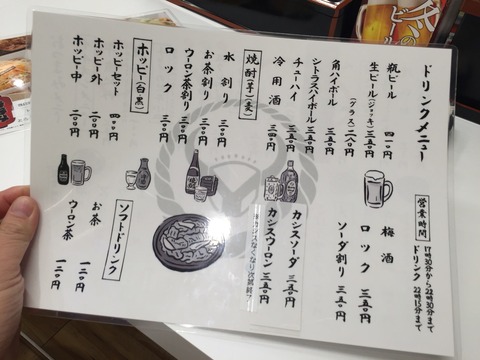 ドリンクメニュー
瓶ビール 四一〇円
生ビール(ジョッキ)三五〇円
(グラス)二八〇円
角ハイボール 三五〇円
シトラスハイボール 三五〇円
チューハイ 三五〇円
冷用酒 三四〇円
焼酎(芋)(麦)
水割り 三〇〇円
お茶割り 三〇〇円
ウーロン茶割り 三〇〇円
ロック 三〇〇円
ホッピー(白・黒)
ホッピーセット 四〇〇円
ホッピー外 二〇〇円
ホッピー中 二〇〇円
営業時間
17時30分から22時30分まで
ドリンク 22時15分まで
梅酒
ロック 三五〇円
ソーダ割り 三五〇円
カシスソーダ 三五〇円
カシスウーロン 三五〇円
ソフトドリンク
お茶 一二〇円
ウーロン茶 一二〇円
ビール